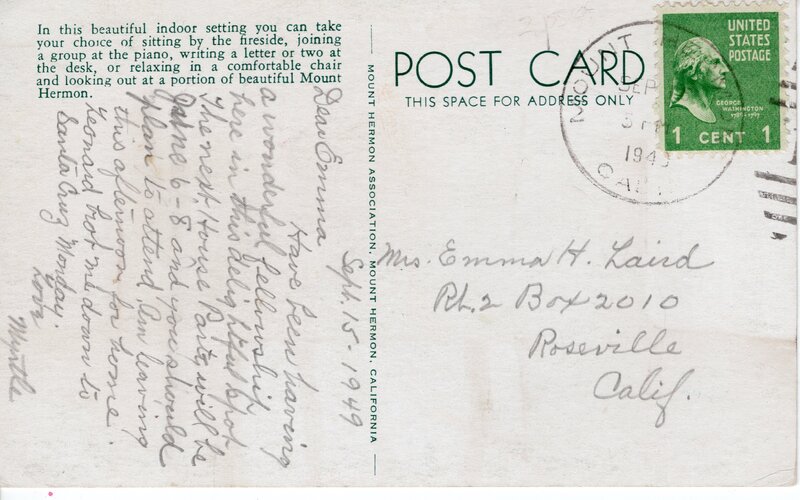 In this beautiful indoor setting you can take
your choice of sitting by the fireside, joining
a group at the piano, writing a letter or two at
the desk, or relaxing in a comfortable chair
and looking out at a portion of beautiful Mount
Hermon.
Sept. 15-1949
Dear Emma
Have been having
a wonderful fellowship
here in this delightful spot
The next House Party will be
June 6-8 and you should
plan to attend. Am leaving
this afternoon for home.
Leonard brot me down to
Santa Cruz Monday.
Love
Myrtle
MOUNT HERMON ASSOCIATION, MOUNT HERMON, CALIFORNIA
POST CARD
THIS SPACE FOR ADDRESS ONLY
MOUNT
SEP
PM
194
CAL
UNITED
STATES
POSTAGE
GEORGE
WASHINGTON
1 CENT 1
Mrs. Emma H. Laird
Rt. 2 Box 2010
Roseville
Calif.